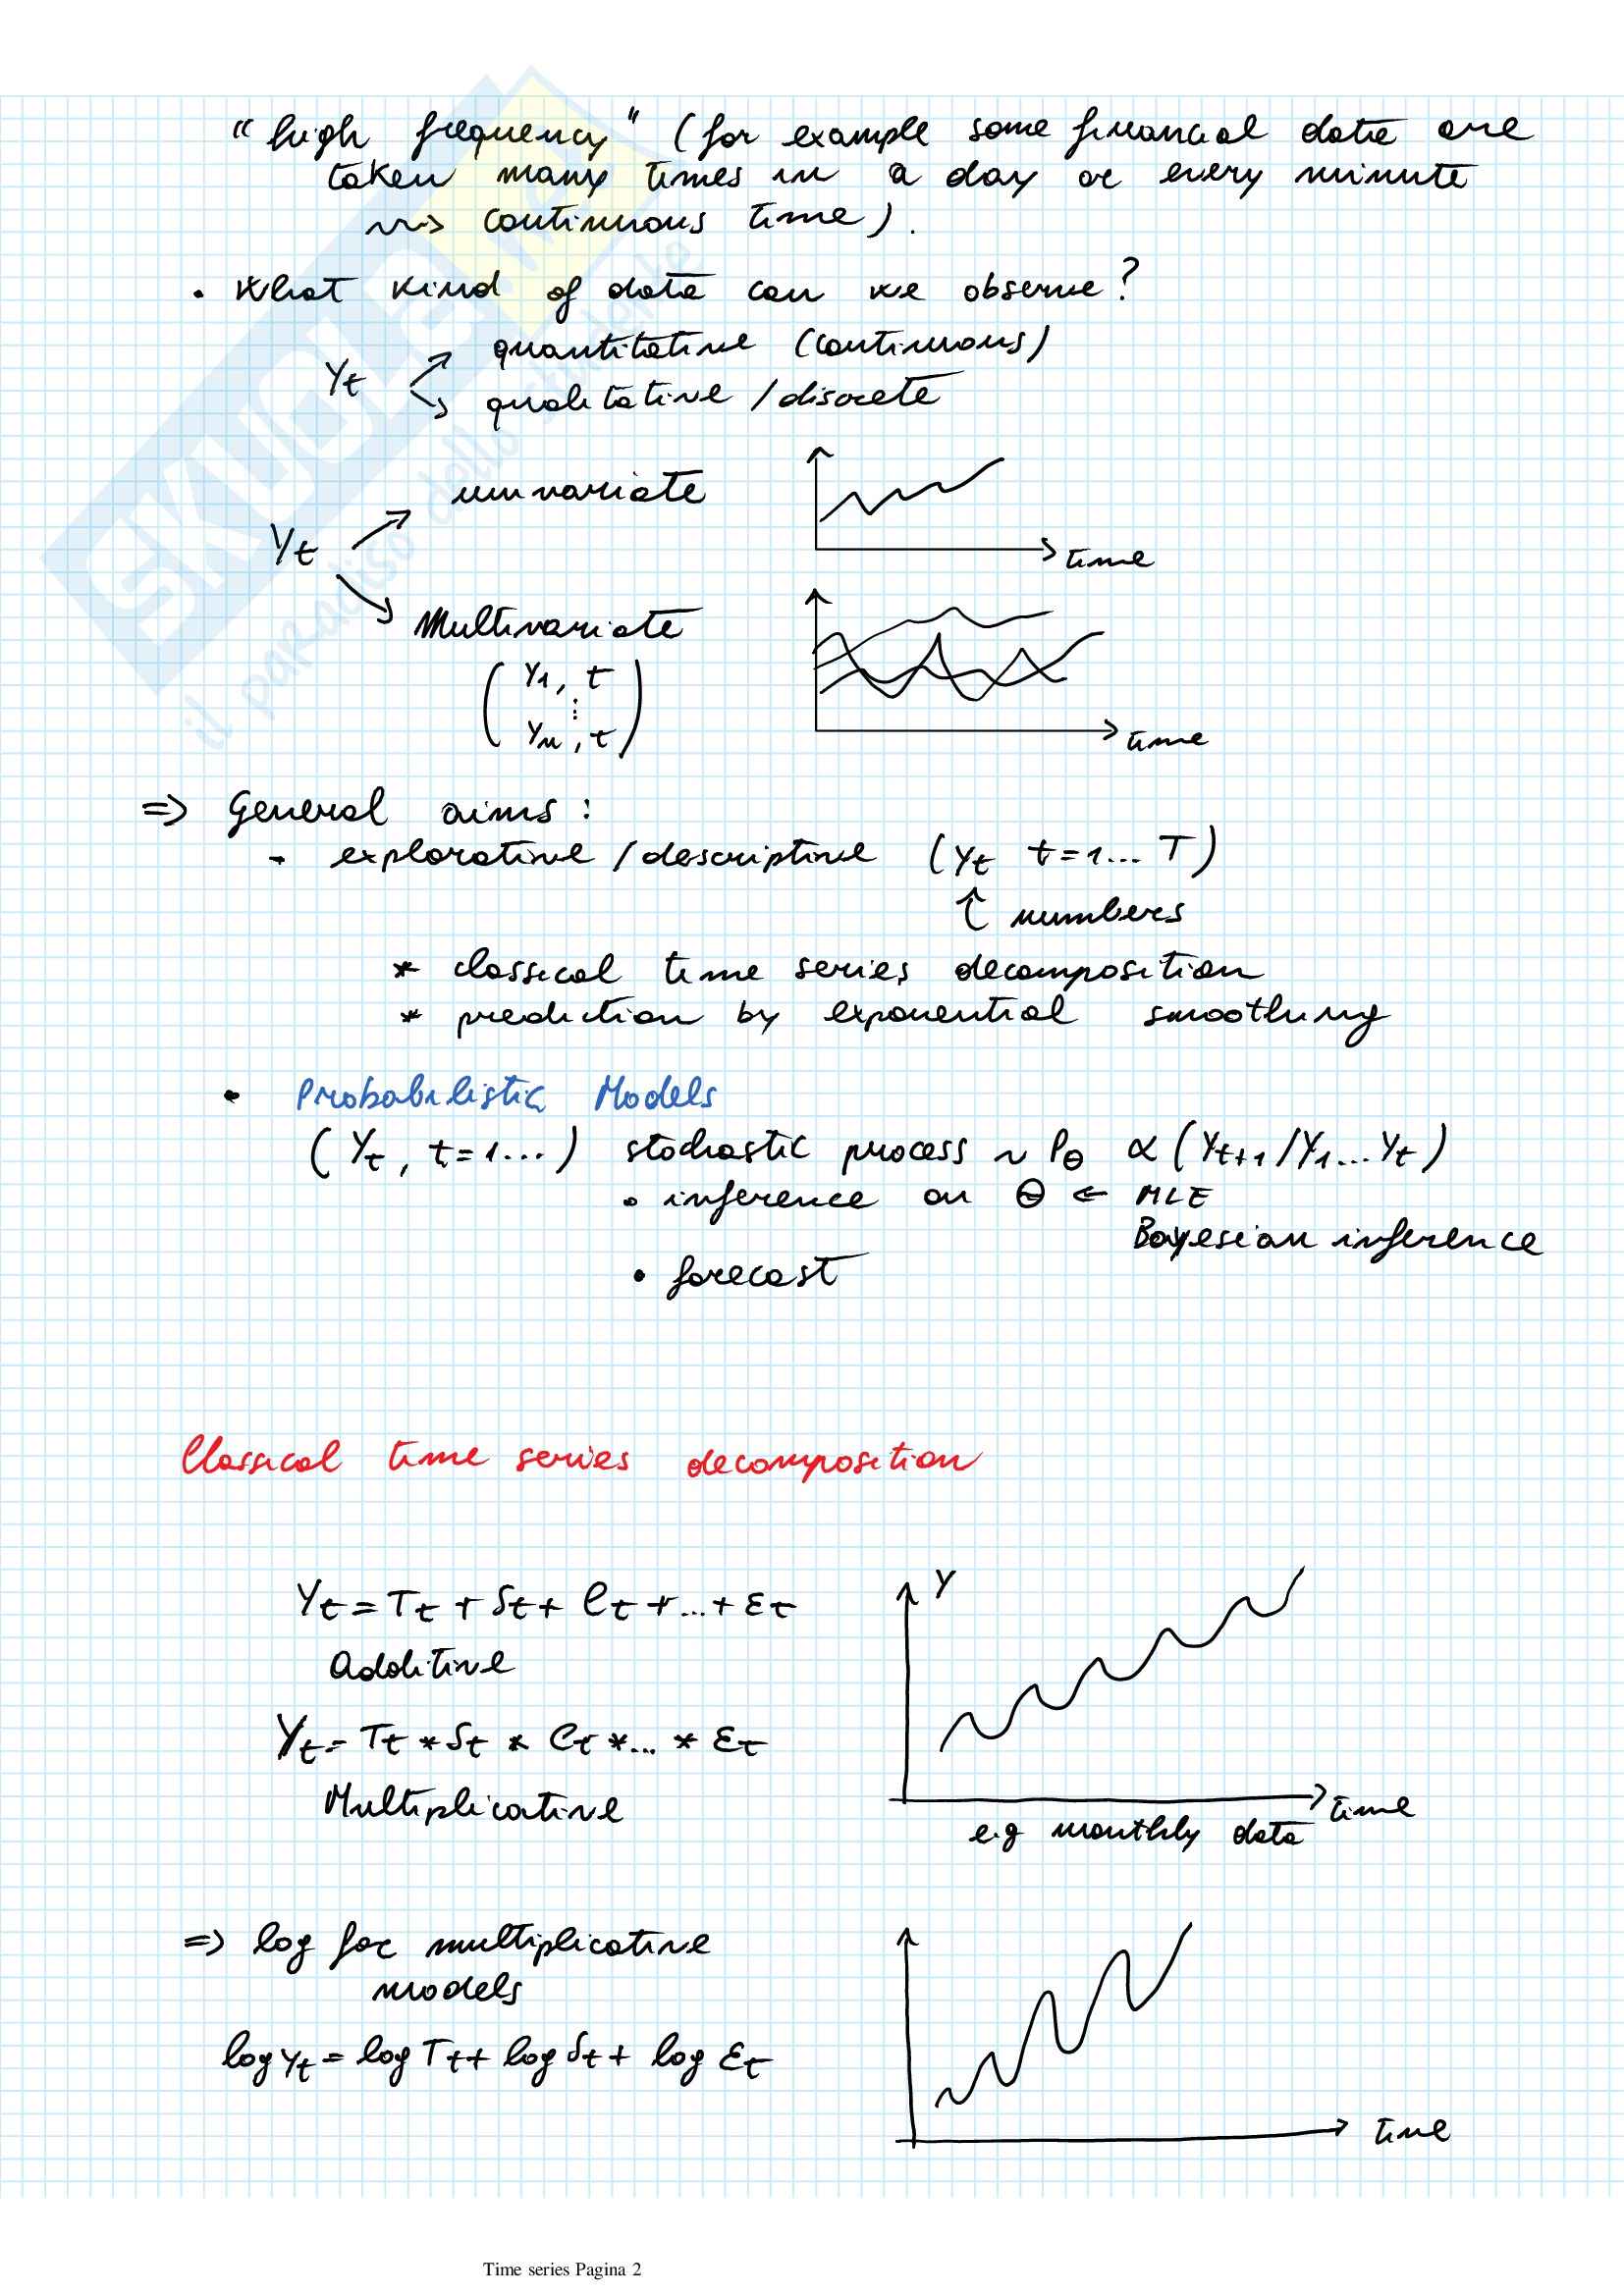 "high frequency" (for example some financial data are
taken many times in a day or every minute
⇝ continuous time).
• What kind of data can we observe?
Yt quantitative (continuous)
qualitative / discrete
univariate
Yt
time
Multivariate
( Y1, t
⋮
Yn, t )
time
=> General aims :
- explorative / descriptive (yt t=1... T)
↑ numbers
* classical time series decomposition
* prediction by exponential smoothing
• Probabilistic Models
(Yt, t=1...) stochastic process ~ Pθ α (Yt+1/Y1...Yt)
• inference on θ ← MLE
Bayesian inference
• forecast
Classical time series decomposition
Yt = Tt + St + Ct + ... + εt
Additive
Y
Yt = Tt * St * Ct * ... * εt
Multiplicative
time
e.g monthly data
=> log for multiplicative
models
log yt = log Tt + log St + log εt
time
Time series Pagina 2
SKUOLA
il paradiso dello studente